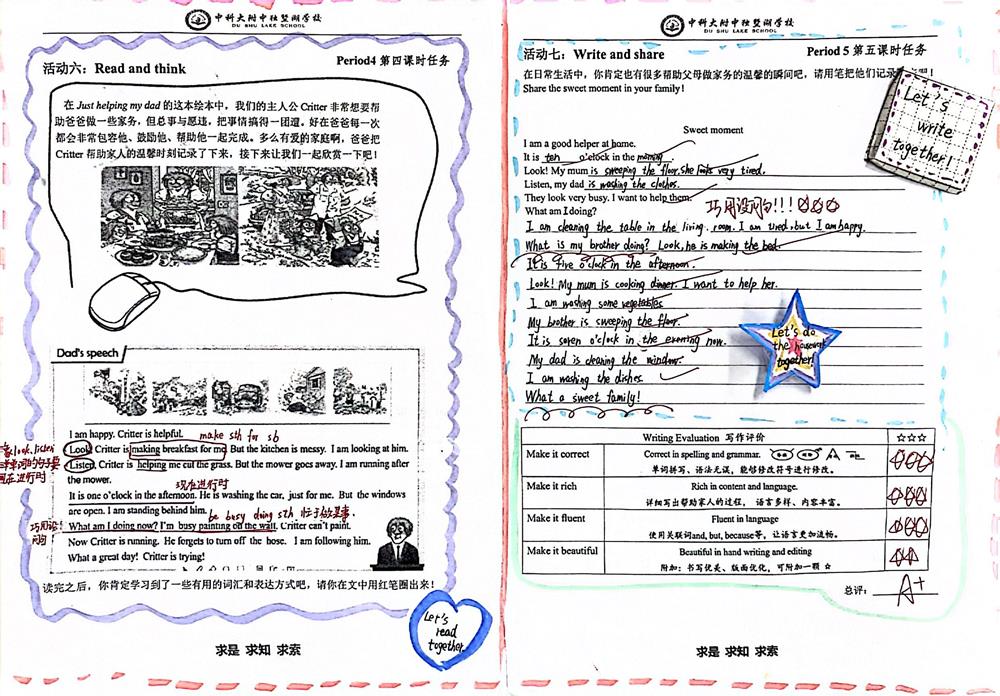 中科大附中独墅湖学校
DU SHU LAKE SCHOOL
活动六：Read and think
Period4 第四课时任务
在 Just helping my dad 的这本绘本中，我们的主人公 Critter 非常想要帮
助爸爸做一些家务，但总事与愿违，把事情搞得一团遭。好在爸爸每一次
都会非常包容他、鼓励他、帮助他一起完成。多么有爱的家庭啊，爸爸把
Critter 帮助家人的温馨时刻记录了下来，接下来让我们一起欣赏一下吧！
Dad's speech
I am happy. Critter is helpful. make sth for sb
Look! Critter is making breakfast for me. But the kitchen is messy. I am looking at him.
Listen, Critter is helping me cut the grass. But the mower goes away. I am running after
the mower.
现在进行时
It is one o'clock in the afternoon. He is washing the car, just for me. But the windows
are open. I am standing behind him. be busy doing sth 忙于做某事.
What am I doing now? I'm busy painting on the wall. Critter can't paint.
Now Critter is running. He forgets to turn off the hose. I am following him.
What a great day! Critter is trying!
look, listen
读完之后，你肯定学习到了一些有用的词汇和表达方式吧，请你在文中用红笔圈出来！
Let's
read
together.
求是 求知 求索
中科大附中独墅湖学校
DU SHU LAKE SCHOOL
活动七：Write and share
Period 5 第五课时任务
在日常生活中，你肯定也有很多帮助父母做家务的温馨的瞬间吧，请用笔把他们记录
Share the sweet moment in your family!
Let's
write
together!
Sweet moment
I am a good helper at home.
It is ten o'clock in the morning.
Look! My mum is sweeping the floor. She looks very tired.
Listen, my dad is washing the clothes.
They look very busy. I want to help them.
巧用设问句!!!
What am I doing?
I am cleaning the table in the living room. I am tired, but I am happy.
What is my brother doing? Look, he is making the bed.
It is five o'clock in the afternoon.
Look! My mum is cooking dinner. I want to help her.
I am washing some vegetables
My brother is sweeping the floor.
It is seven o'clock in the evening now.
My dad is cleaning the window.
I am washing the dishes.
What a sweet family!
Let's do
the housework
together!
Writing Evaluation 写作评价 ☆☆☆
Make it correct Correct in spelling and grammar.
单词拼写、语法无误，能够修改符号进行修改。
Make it rich Rich in content and language.
详细写出帮助家人的过程，语言多样、内容丰富。
Make it fluent Fluent in language
使用关联词and, but, because等，让语言更加流畅。
Make it beautiful Beautiful in hand writing and editing
附加：书写优美、版面优化，可附加一颗 ☆
总评：A+
求是 求知 求索